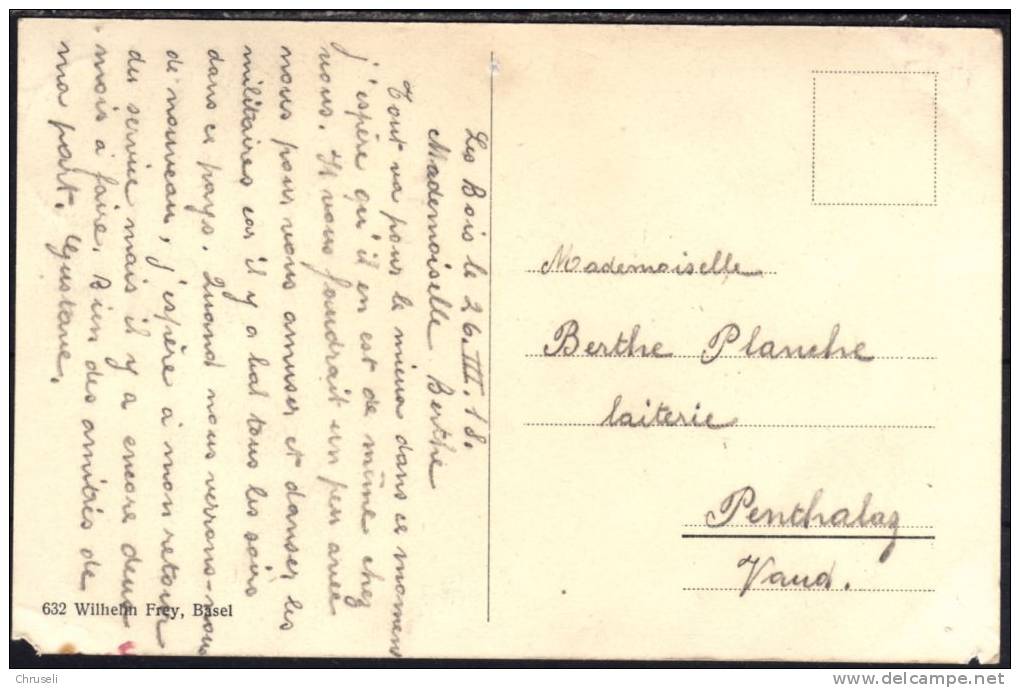 Les Bois le 26. III. 18.
Mademoiselle Berthe
Tout va pour le mieux dans ce moment
j'espère qu'il en est de même chez
vous. Il vous faudrait un peu avec
nous pour vous amuser et danser les
militaires car il y a bal tous les soirs
dans ce pays. Quand nous verrons-nous
de nouveau, j'espère à mon retour
du service mais il y a encore deux
mois à faire. Bien des amitiés de
ma part. Gustave.
Mademoiselle
Berthe Planche
laiterie
Penthalaz
Vaud.
632 Wilhelm Frey, Basel
© Chruseli
www.delcampe.net